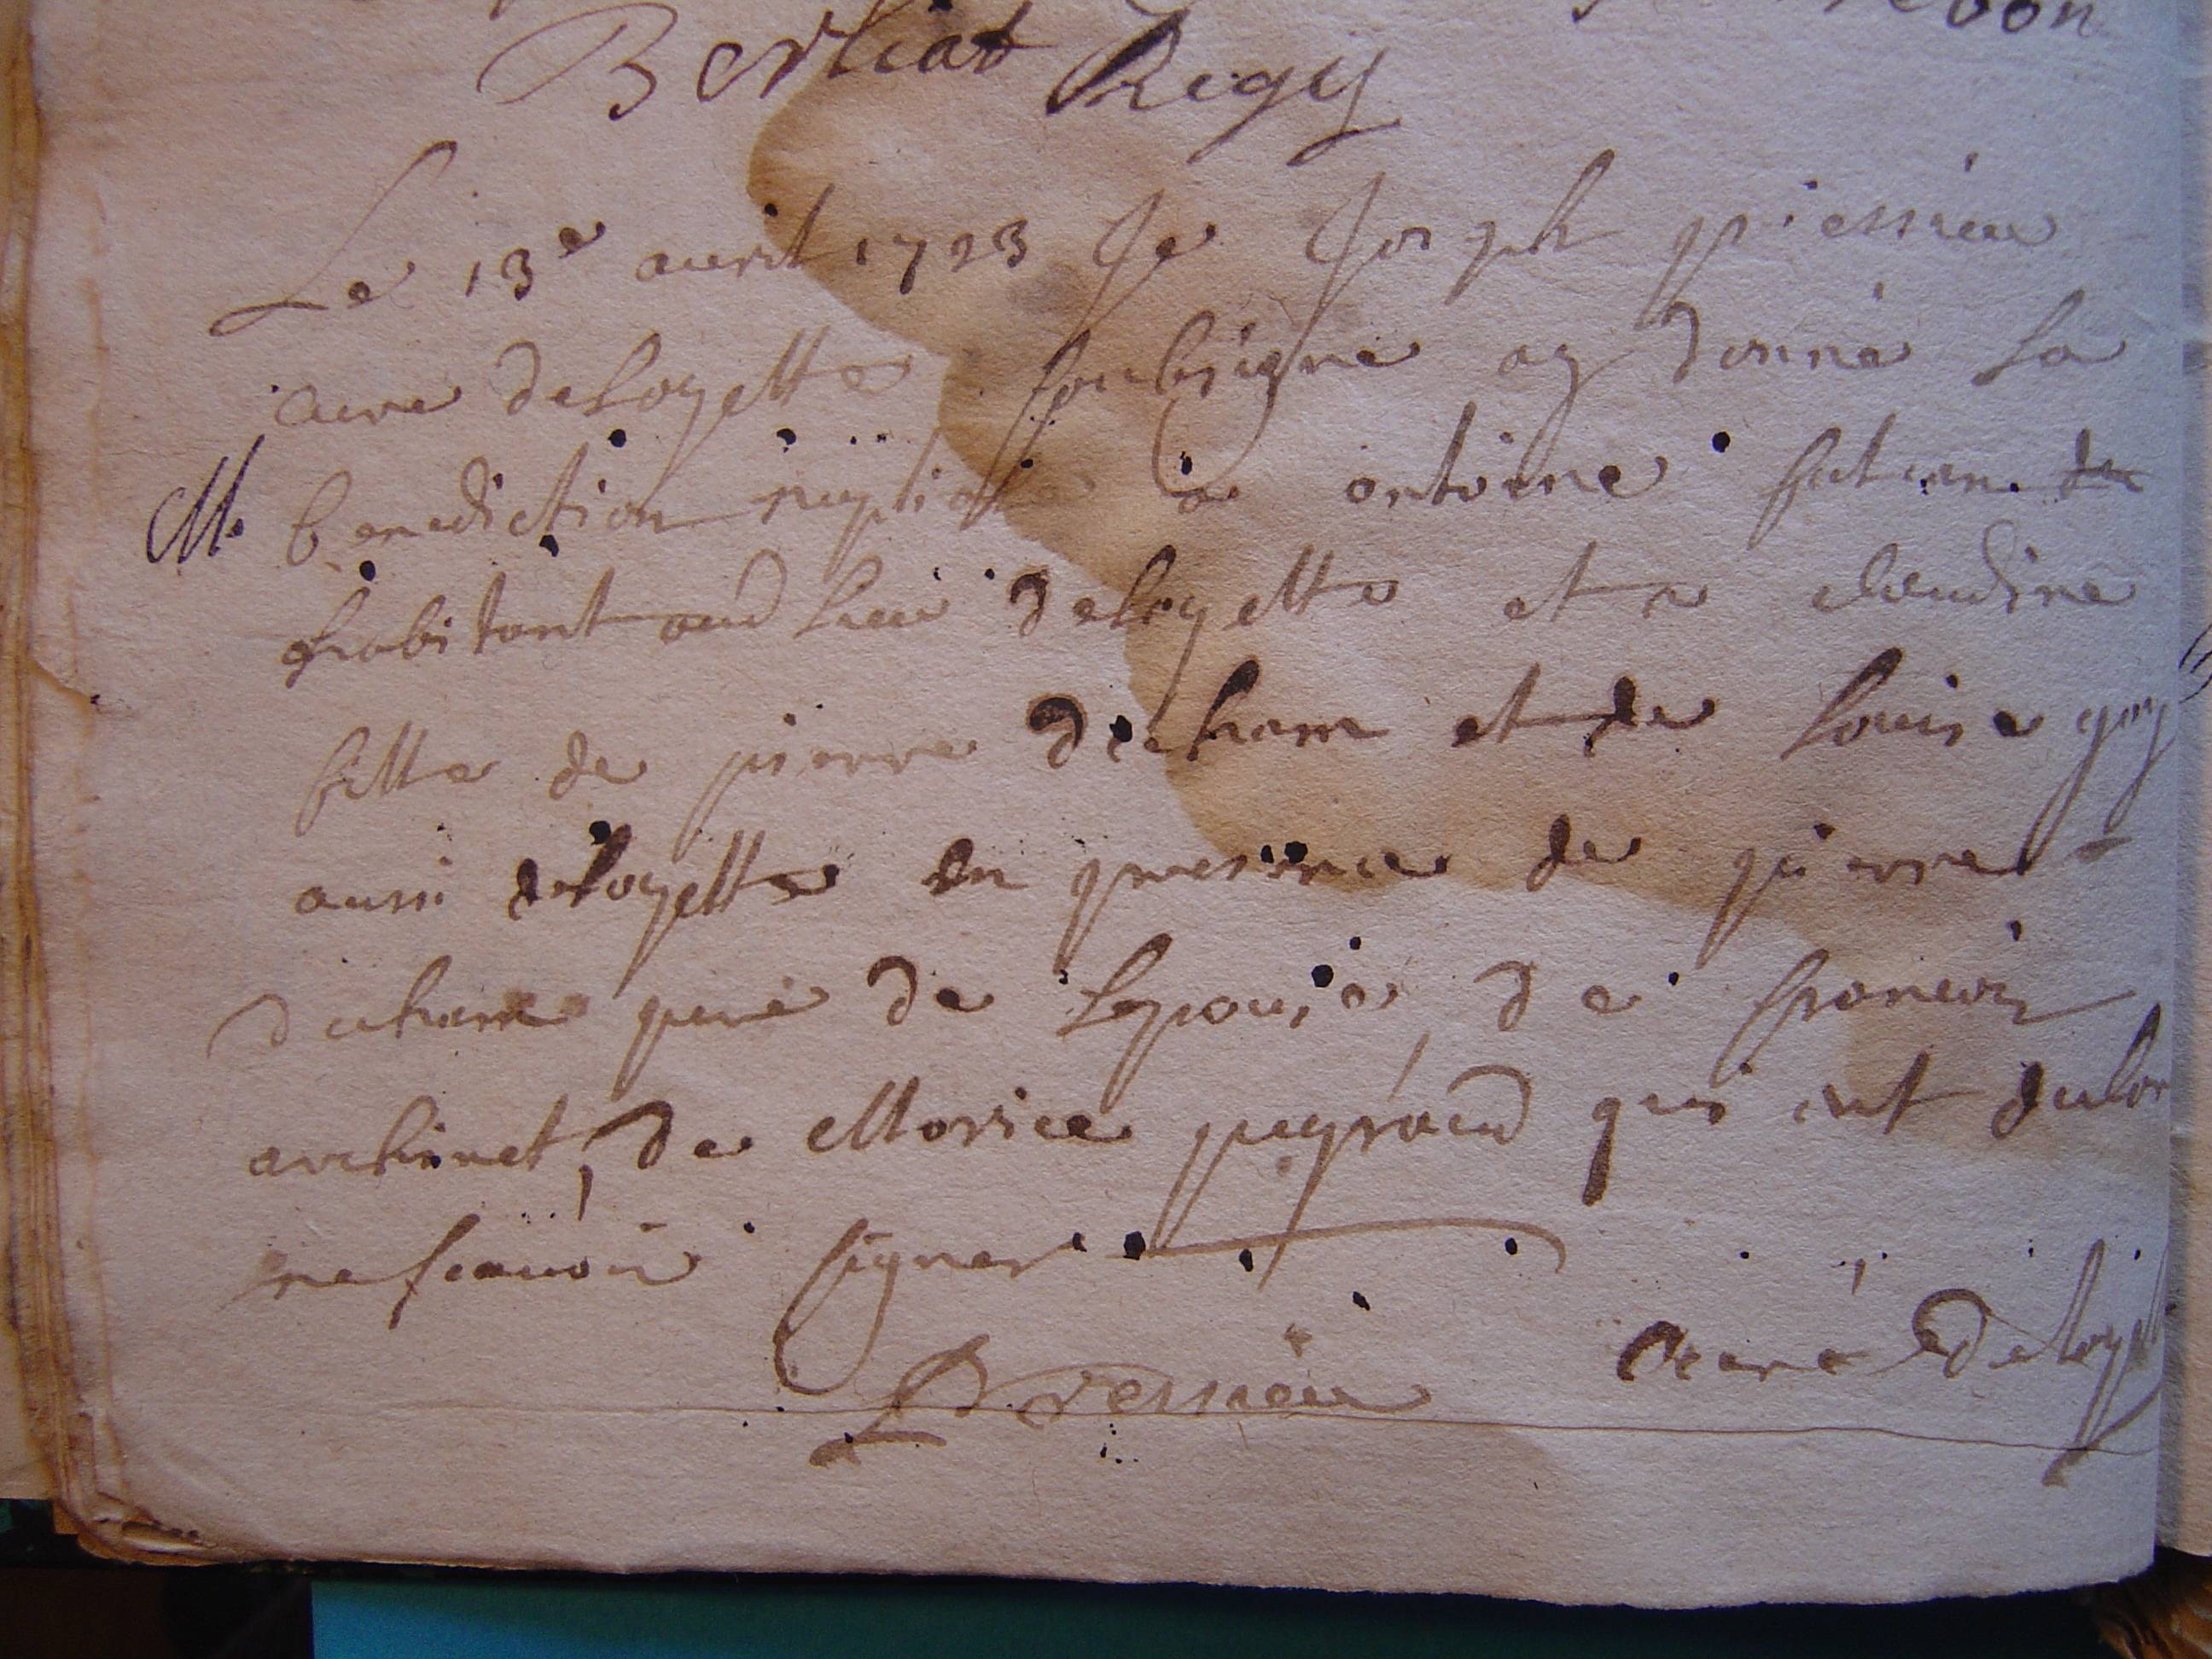 Berliat Regy
Le 13e auril 1723 Je Joseph pressieu
cure deloyette soubsigne ay donné la
M. benediction nuptiale a antoine
habitant aud lieu deloyette et a claudine
fille de pierre ducham et de louise goy
aussi deloyette en presence de pierre
ducham pere de lepouse, de francois
archinet, de Morice peyraud qui ont
ne scauoir signer
Pressieu curé deloyette